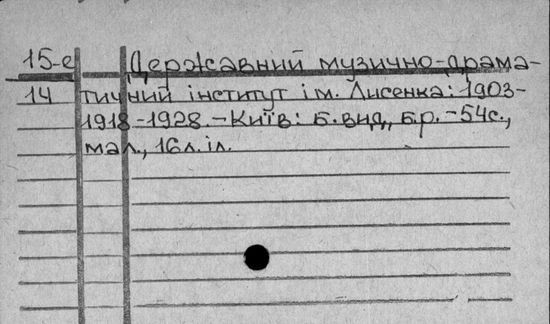 15-е Державний музично-драма-
14 тичний інститут ім. Лисенка: 1903-
1918-1928.-Київ: Б.вид., Б.р.-54с.,
мал., 16л.іл.